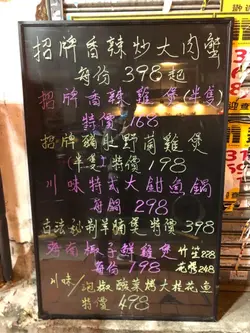 招牌香辣炒大肉蟹
每份398起
招牌香辣雞煲(半隻)
特價168
招牌豬肚野菌雞煲
(半隻)特價198
川味特式大鉗魚鍋
每鍋298
古法秘制羊腩煲特價398
海南椰子鮮雞煲 竹笙228
每份198
川味/泡椒酸菜烤大桂花魚
特價498